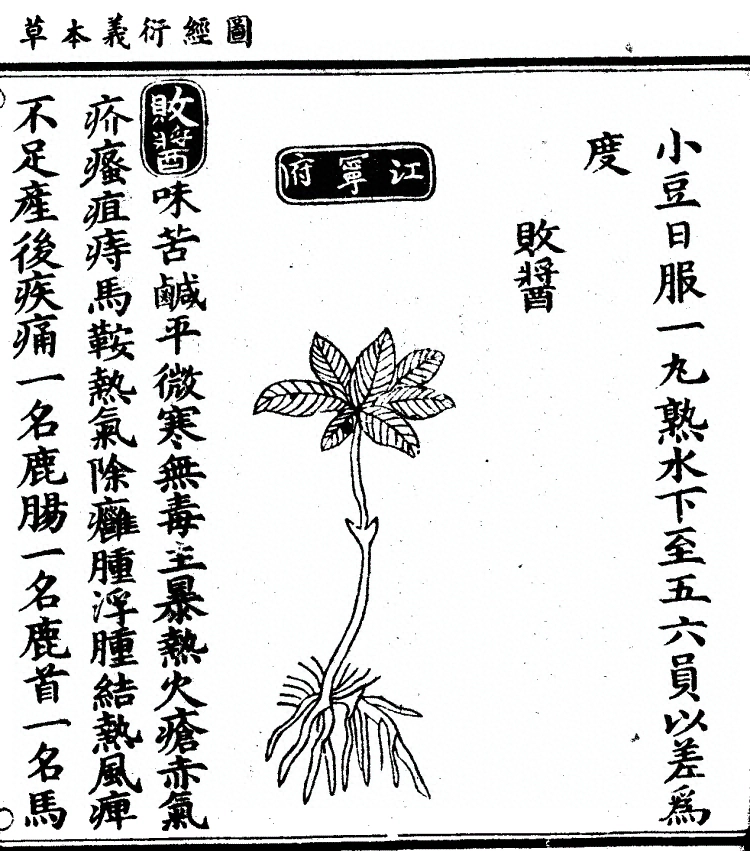 圖經衍義本草
小豆日服一丸熟水下至五六員以差爲
度
敗醬
江寧府
敗醬味苦鹹平微寒無毒主暴熱火瘡赤氣
疥瘙疽痔馬鞍熱氣除癰腫浮腫結熱風痺
不足產後疾痛一名鹿腸一名鹿首一名馬